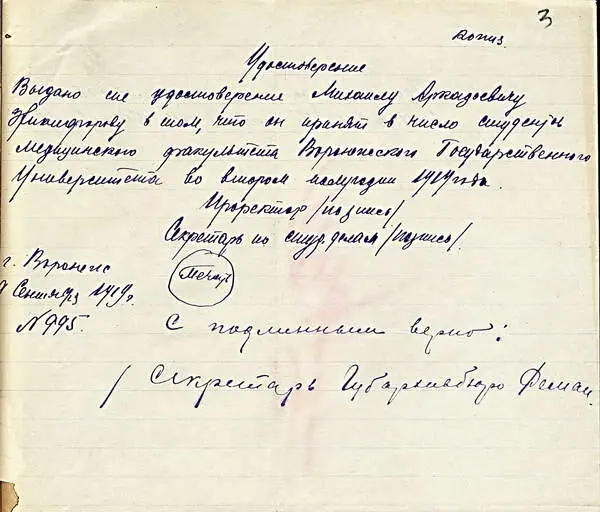 3
копия.
Удостоверение
Выдано сие удостоверение Михаилу Аркадьевичу
в том, что он принят в число студенты
Медицинского факультета Воронежского Государственного
Университета во втором полугодии 1919 года.
Проректор /подпись/
Секретарь по студ. делам /подпись/.
г. Воронеж
Сентября 1919г.
Печать
N 995.
С подлинным верно:
Секретарь Губархивбюро